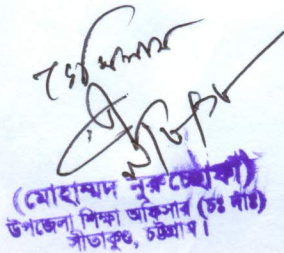 দেখিলাম
(মোহাম্মদ নুরুচ্ছোফা)
উপজেলা শিক্ষা অফিসার (চঃ দাঃ)
সীতাকুণ্ড, চট্টগ্রাম।